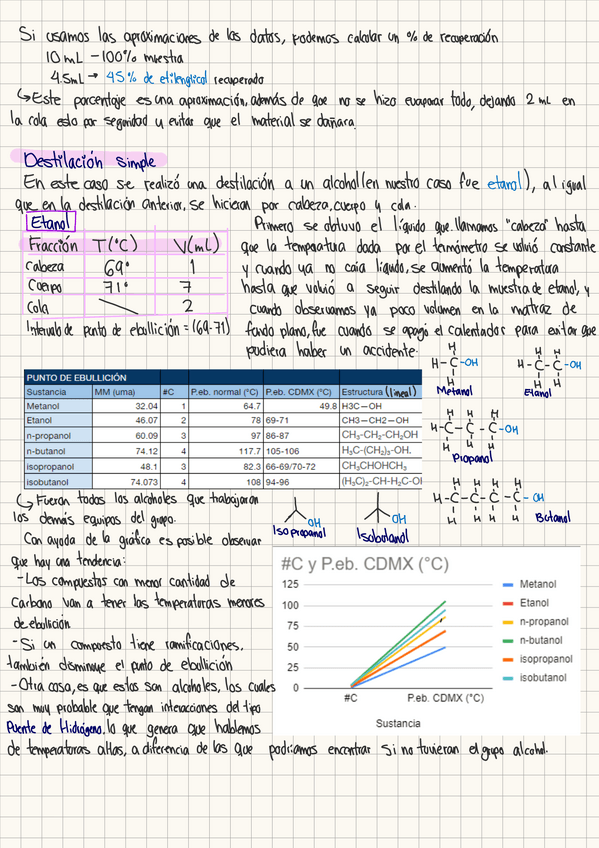 Si usamos las aproximaciones de los datos, podemos calcular un % de recuperación
10 mL - 100% muestra
4.5mL → 45% de etilenglicol recuperado
↳ Este porcentaje es una aproximación, además de que no se hizo evaporar todo, dejando 2 mL en
la cola esto por seguridad y evitar que el material se dañara.
Destilación simple
En este caso se realizó una destilación a un alcohol (en nuestro caso fue etanol), al igual
que en la destilación anterior, se hicieron por cabeza, cuerpo y cola.
Etanol
Fracción T(°C) V(mL)
Cabeza 69° 1
Cuerpo 71° 7
Cola 2
Intervalo de punto de ebullición = (69-71)
Primero se obtuvo el líquido que llamamos "cabeza" hasta
que la temperatura dada por el termómetro se volvió constante
y cuando ya no caía líquido, se aumentó la temperatura
hasta que volvió a seguir destilando la muestra de etanol, y
cuando observamos ya poco volumen en la matraz de
fondo plano, fue cuando se apagó el calentador para evitar que
pudiera haber un accidente.
PUNTO DE EBULLICIÓN
Sustancia MM (uma) #C P.eb. normal (°C) P.eb. CDMX (°C) Estructura (lineal)
Metanol 32.04 1 64.7 49.8 H3C—OH
Etanol 46.07 2 78 69-71 CH3—CH2—OH
n-propanol 60.09 3 97 86-87 CH₃-CH₂-CH₂OH
n-butanol 74.12 4 117.7 105-106 H₃C-(CH₂)₃-OH.
isopropanol 48.1 3 82.3 66-69/70-72 CH₃CHOHCH₃
isobutanol 74.073 4 108 94-96 (H₃C)₂-CH-H₂C-OH
H
H-C-OH
H
Metanol
H H
H-C-C-OH
H H
Etanol
H H H
H-C-C-C-OH
H H H
Propanol
H H H H
H-C-C-C-C-OH
H H H H
Butanol
OH
Isopropanol
OH
Isobutanol
↳ Fueron todos los alcoholes que trabajaron
los demás equipos del grupo.
Con ayuda de la gráfica es posible observar
que hay una tendencia:
- Los compuestos con menor cantidad de
Carbono van a tener las temperaturas menores
de ebullición
- Si un compuesto tiene ramificaciones,
también disminuye el punto de ebullición
- Otra cosa, es que estos son alcoholes, los cuales
son muy probable que tengan interacciones del tipo
Puente de Hidrógeno, lo que genera que hablemos
de temperaturas altas, a diferencia de las que podríamos encontrar si no tuvieran el grupo alcohol.
#C y P.eb. CDMX (°C)
125
100
75
50
25
0
#C P.eb. CDMX (°C)
Sustancia
Metanol
Etanol
n-propanol
n-butanol
isopropanol
isobutanol